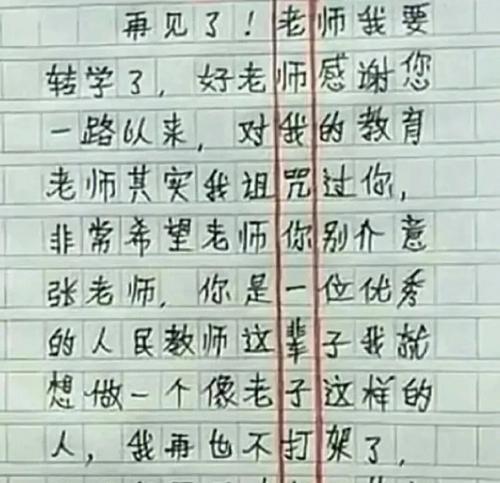 再见了！老师我要
转学了，好老师感谢您
一路以来，对我的教育
老师其实我诅咒过你，
非常希望老师你别介意
张老师，你是一位优秀
的人民教师这辈子我就
想做一个像老子这样的
人，我再也不打架了，